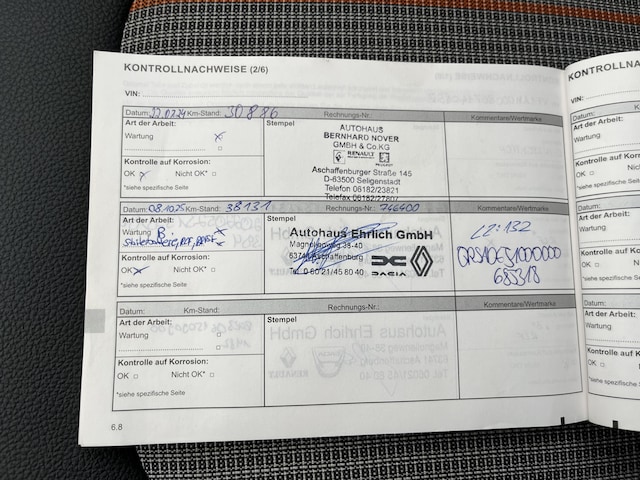 KONTROLLNACHWEISE (2/6)
VIN:
Datum: 22.07.24 Km-Stand: 30886 Rechnungs-Nr.: Kommentare/Wertmarke
Art der Arbeit:
Wartung x
Kontrolle auf Korrosion:
OK Nicht OK*
*siehe spezifische Seite
Stempel
AUTOHAUS
BERNHARD NOVER
GMBH & Co.KG
RENAULT PEUGEOT
Aschaffenburger Straße 145
D-63500 Seligenstadt
Telefon 06182/23821
Telefax 06182/27807
Datum: 08.10.25 Km-Stand: 38131 Rechnungs-Nr.: 746400 Kommentare/Wertmarke
Art der Arbeit:
Wartung B. x
Kontrolle auf Korrosion:
OK x Nicht OK*
*siehe spezifische Seite
Stempel
Autohaus Ehrlich GmbH
Magnolienweg 38-40
63741 Aschaffenburg
Tel. 0 60 21/45 80 40
DACIA
LZ: 132
685318
Datum: Km-Stand: Rechnungs-Nr.: Kommentare/Wertmarke
Art der Arbeit:
Wartung
Kontrolle auf Korrosion:
OK Nicht OK*
*siehe spezifische Seite
Stempel
6.8
KONTROLLNA
VIN:
Datum:
Art der Arbeit:
Wartung
Kontrolle auf Ko
OK
*siehe spezifische S
Datum:
Art der Arbeit:
Wartung
Kontrolle auf
OK
*siehe spezifische
Datum:
Art der Arbeit:
Wartung
Kontrolle auf
OK
*siehe spezifisch